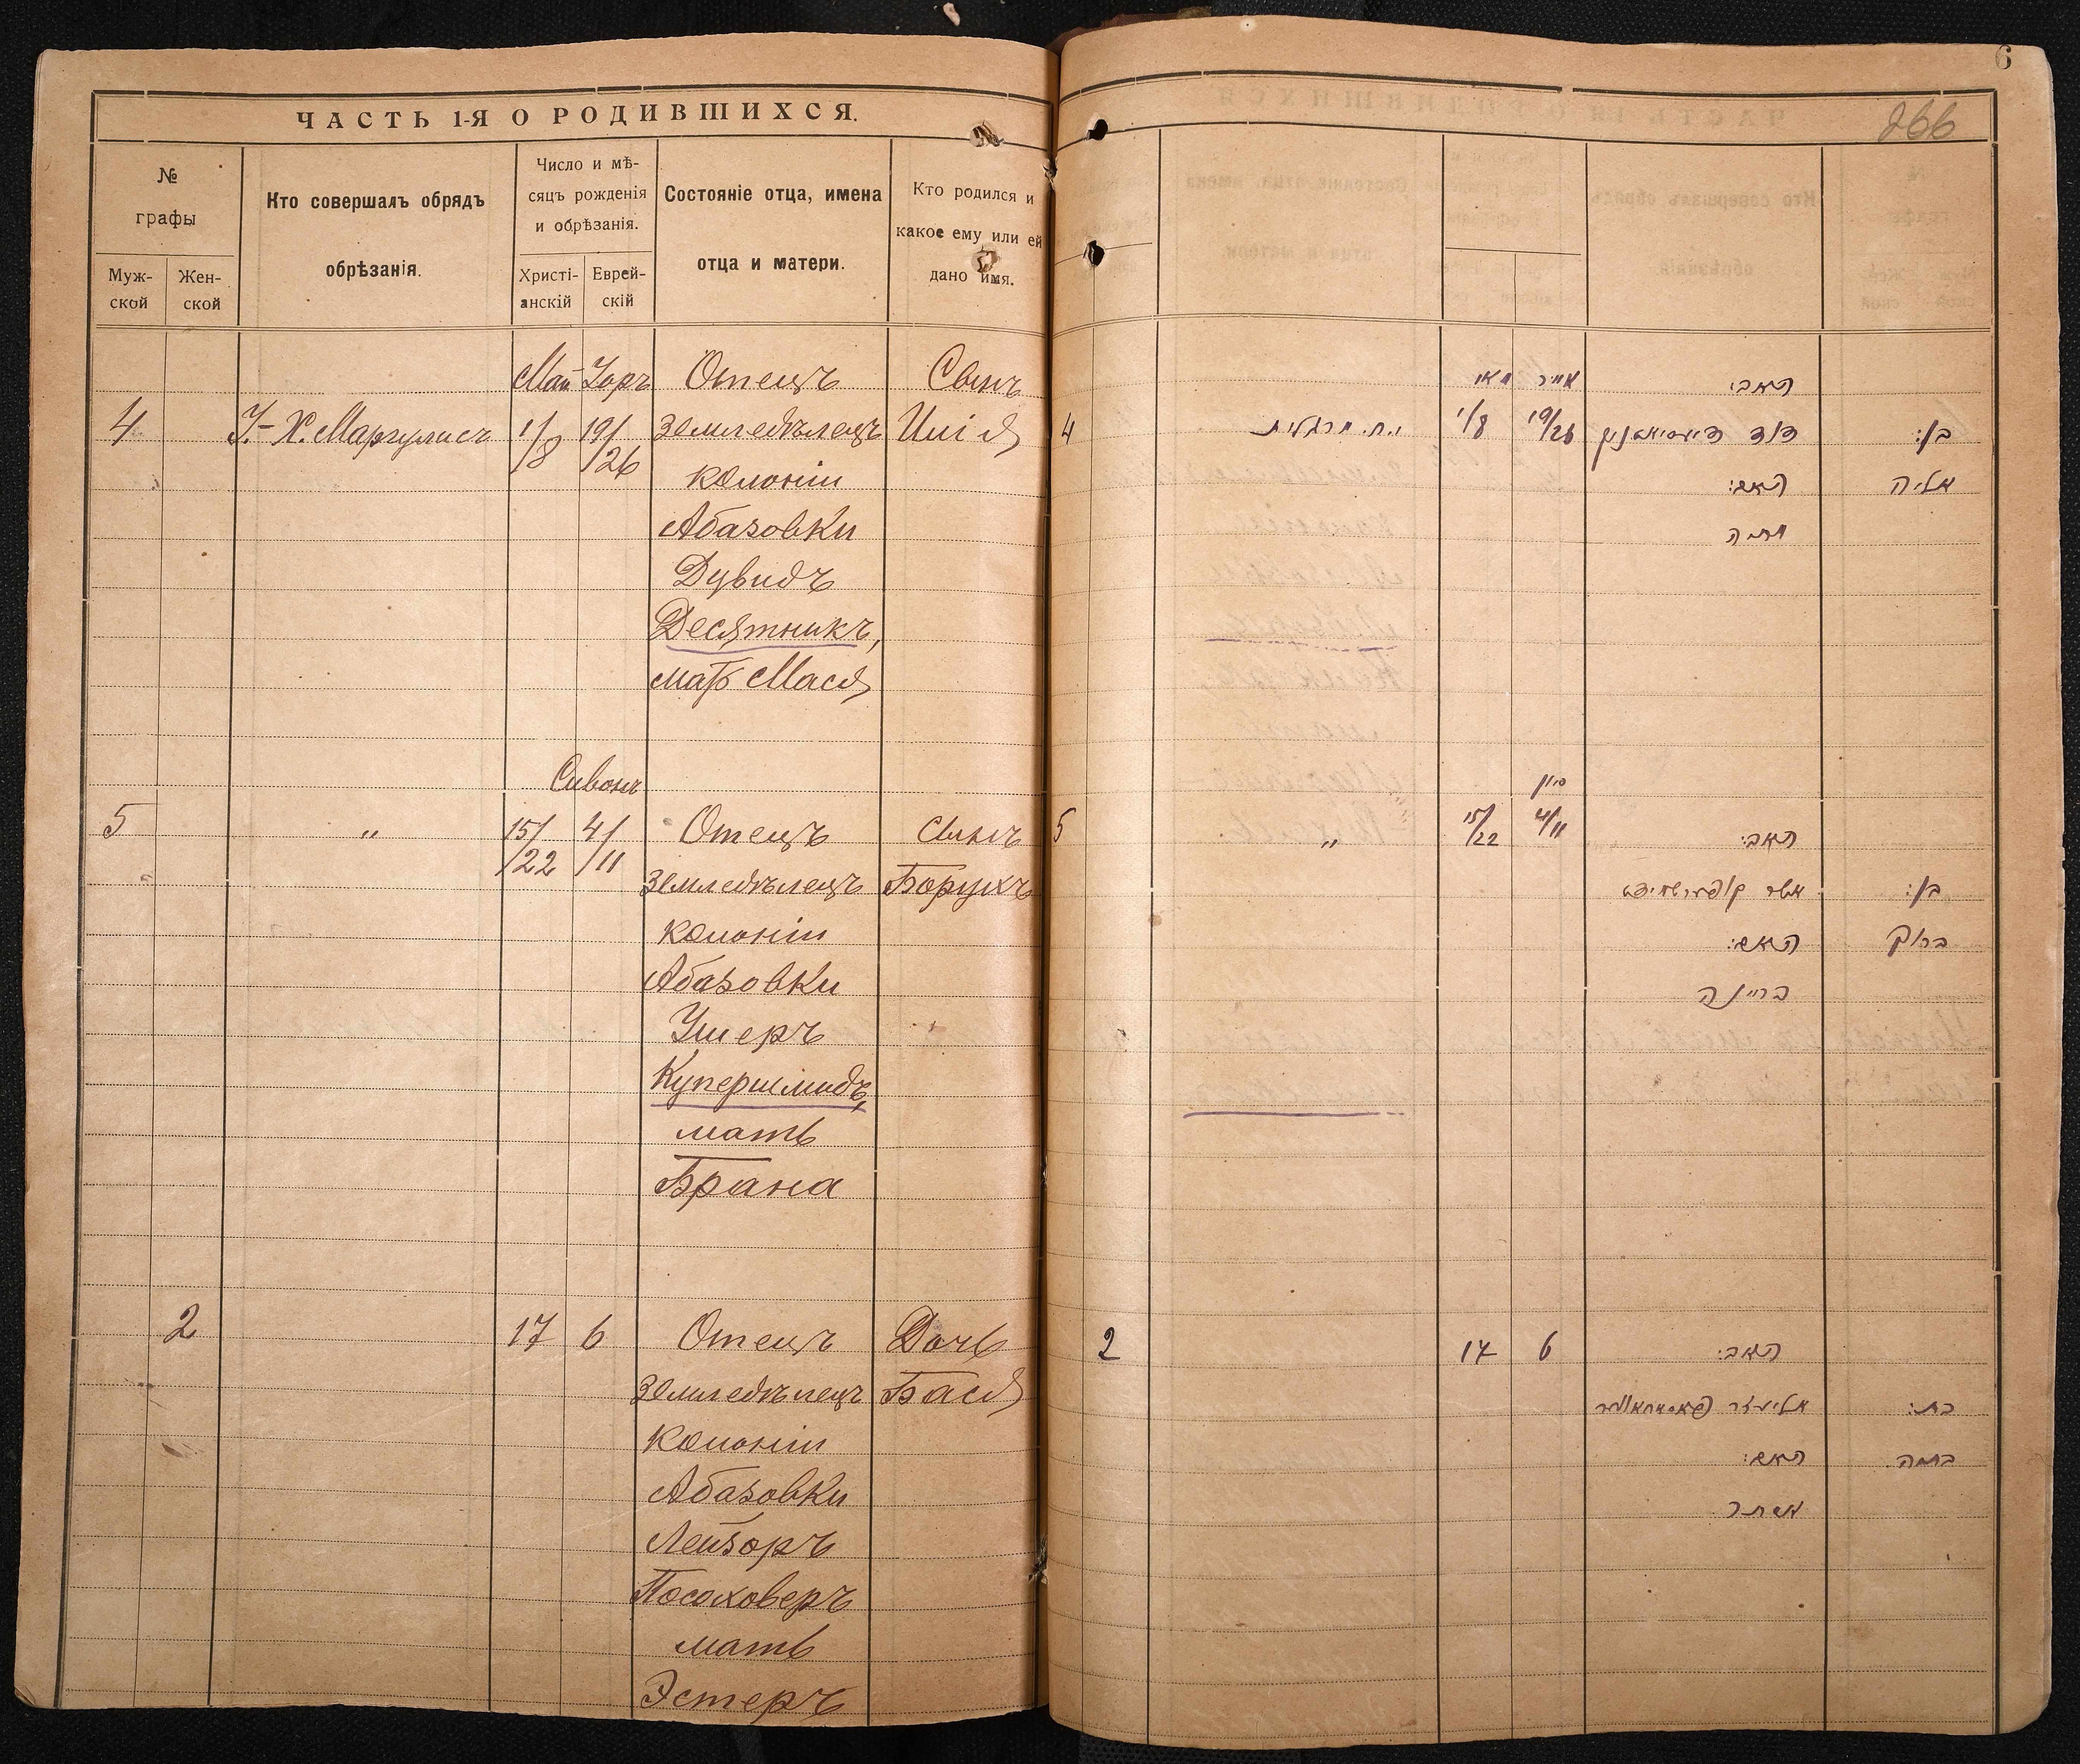 ЧАСТЬ 1-Я О РОДИВШИХСЯ.
№
графы
Муж-
ской
Жен-
ской
Кто совершалъ обрядъ
обрѣзанія.
Число и мѣ-
сяцъ рожденія
и обрѣзанія.
Христі-
анскій
Еврей-
скій
Состояніе отца, имена
отца и матери.
Кто родился и
какое ему или ей
дано имя.
Май Іоръ Отецъ Сынъ
4 І.-Х. Маргулисъ 1/8 19/26 земледѣлецъ Шія
колоніи
Абазовки
Дувидъ
Десятникъ,
мать Мася
Сивонъ
5 „ 15/22 4/11 Отецъ сынъ
земледѣлецъ Борухъ
колоніи
Абазовки
Ушеръ
Купершмидъ,
мать
Брана
2 17 6 Отецъ Дочь
земледѣлецъ Бася
колоніи
Абазовки
Лейзоръ
Посоховеръ
мать
Эстеръ
6
266
מאי אייר האב:
4 י.ח. מרגלית 1/8 19/26 דוד דיסיאטניק בן:
האם:
סיון
5 „ 15/22 4/11 האב:
אשר קופערשמידט בן:
האם: ברוך
בריינה
2 17 6 האב:
אליעזר בת:
האם: בתיה
אסתר